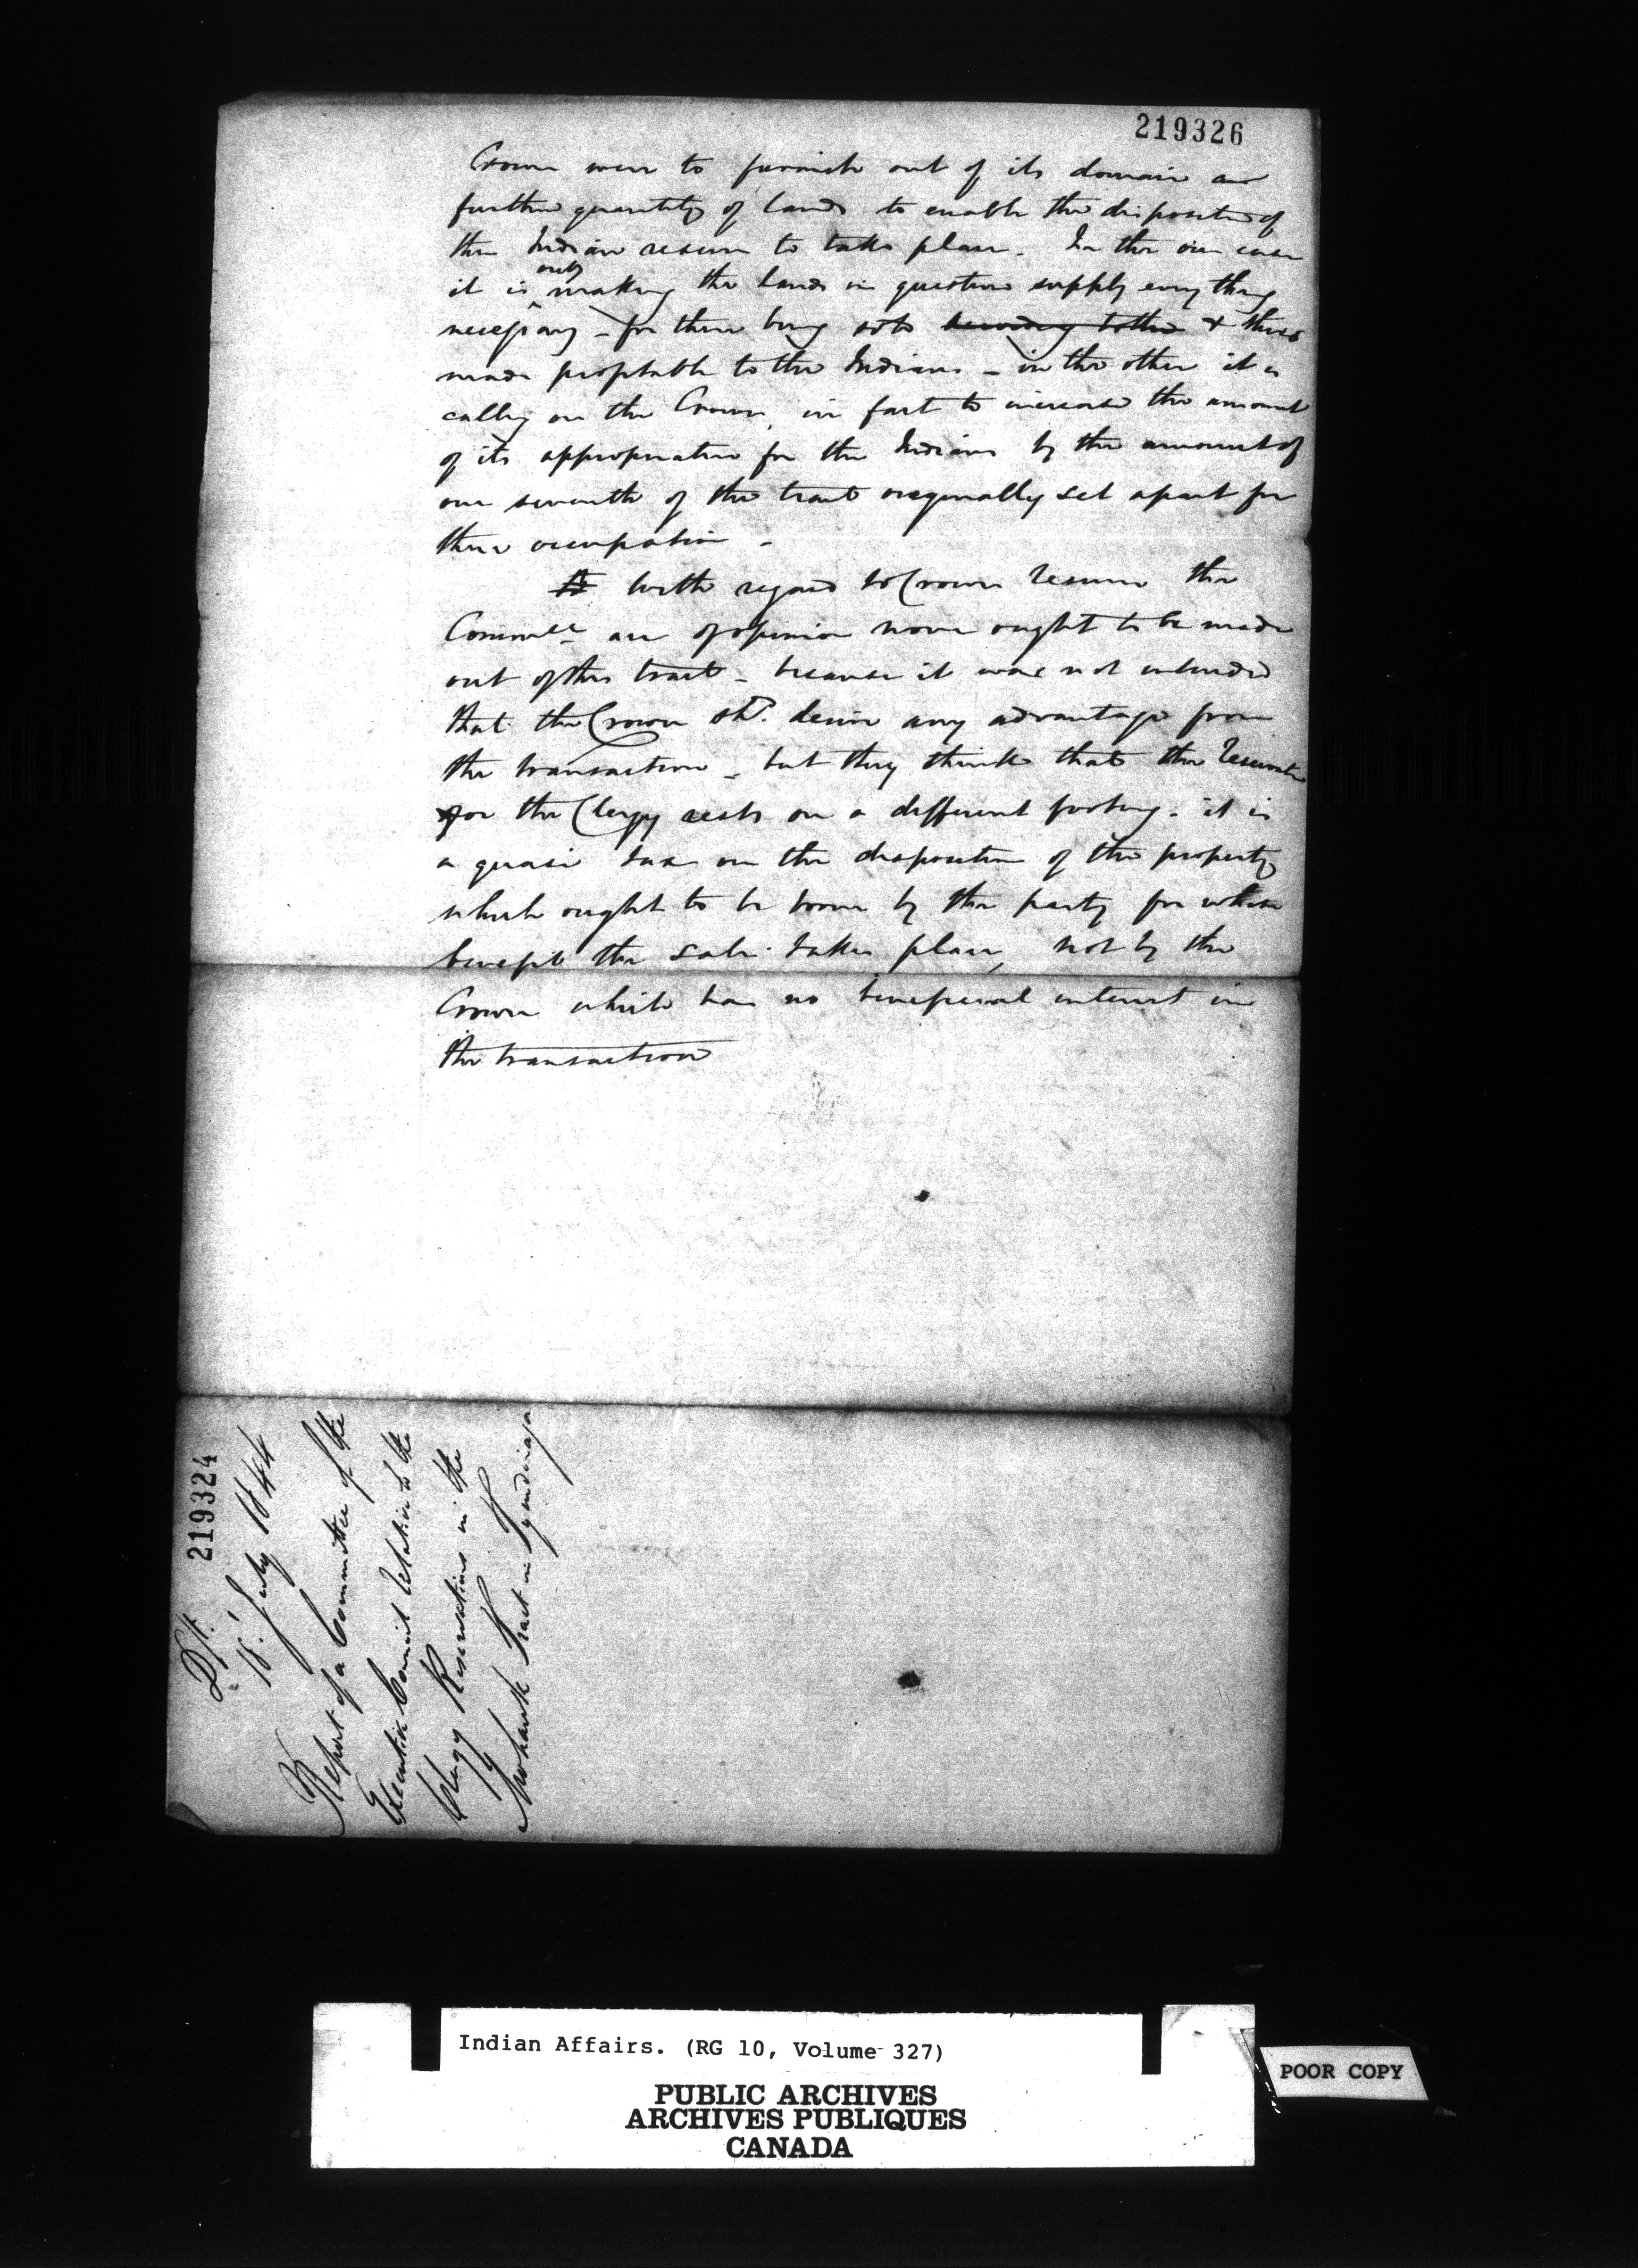 219326
Crown were to furnish out of its domain a
further quantity of lands to enable the disposition of
the Indian reserve to take place. In the one case
only
it is making the lands in question supply every thing
necessary - for there being sold & thus
made profitable to the Indians - in the other it is
calling on the Crown, in fact to increase the amount
of its appropriation for the Indians by the amount of
one seventh of the tract originally set apart for
their occupation -
With regard to Crown reserves the
Committee are of opinion none ought to be made
out of this tract - because it was not intended
that the Crown shd. derive any advantage from
the transaction - but they think that the Reservation
for the Clergy rests on a different footing. it is
a quasi tax on the disposition of the property
which ought to be borne by the party for whose
benefit the sale takes place, not by the
Crown which has no beneficial interest in
the transaction
219324
Dft.
18. July 1844
Report of a Committee of the
Executive Council relative to the
Clergy Reservations in the
Mohawk Tract in Tyendinaga
Indian Affairs. (RG 10, Volume 327)
PUBLIC ARCHIVES
ARCHIVES PUBLIQUES
CANADA
POOR COPY